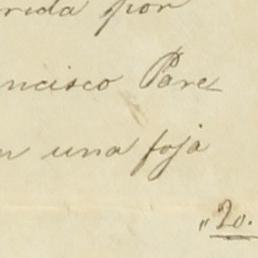 rida por
ncisco Pare
n una foja
" 20.